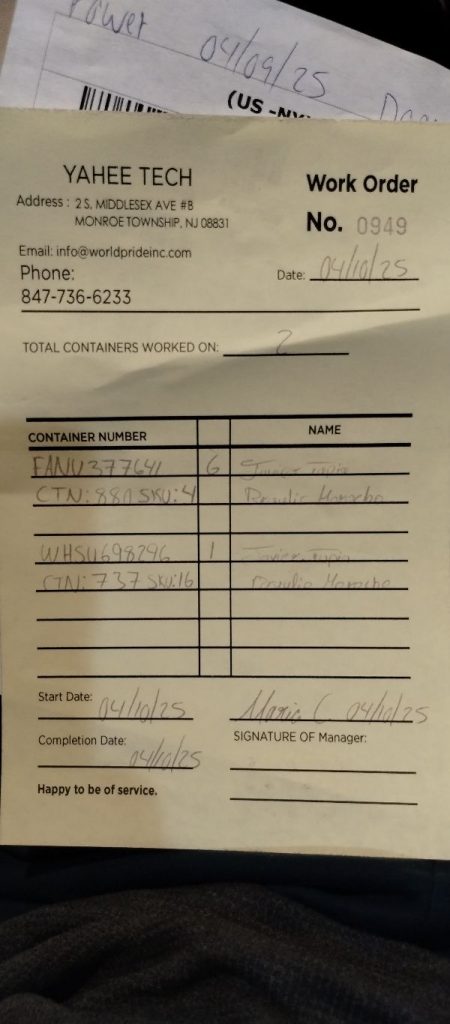 Power 04/09/25
(US -NY
YAHEE TECH
Address : 2 S. MIDDLESEX AVE #B
MONROE TOWNSHIP, NJ 08831
Work Order
No. 0949
Email: info@worldprideinc.com
Phone:
847-736-6233
Date: 04/10/25
TOTAL CONTAINERS WORKED ON: 2
CONTAINER NUMBER NAME
FANU377641 6 Javier Tapia
CTN: 880 SKU: 4
WHSU698296 1 Javier Tapia
CTN: 737 SKU: 16
Start Date: 04/10/25
Mario C 04/10/25
Completion Date: 04/10/25
SIGNATURE OF Manager:
Happy to be of service.